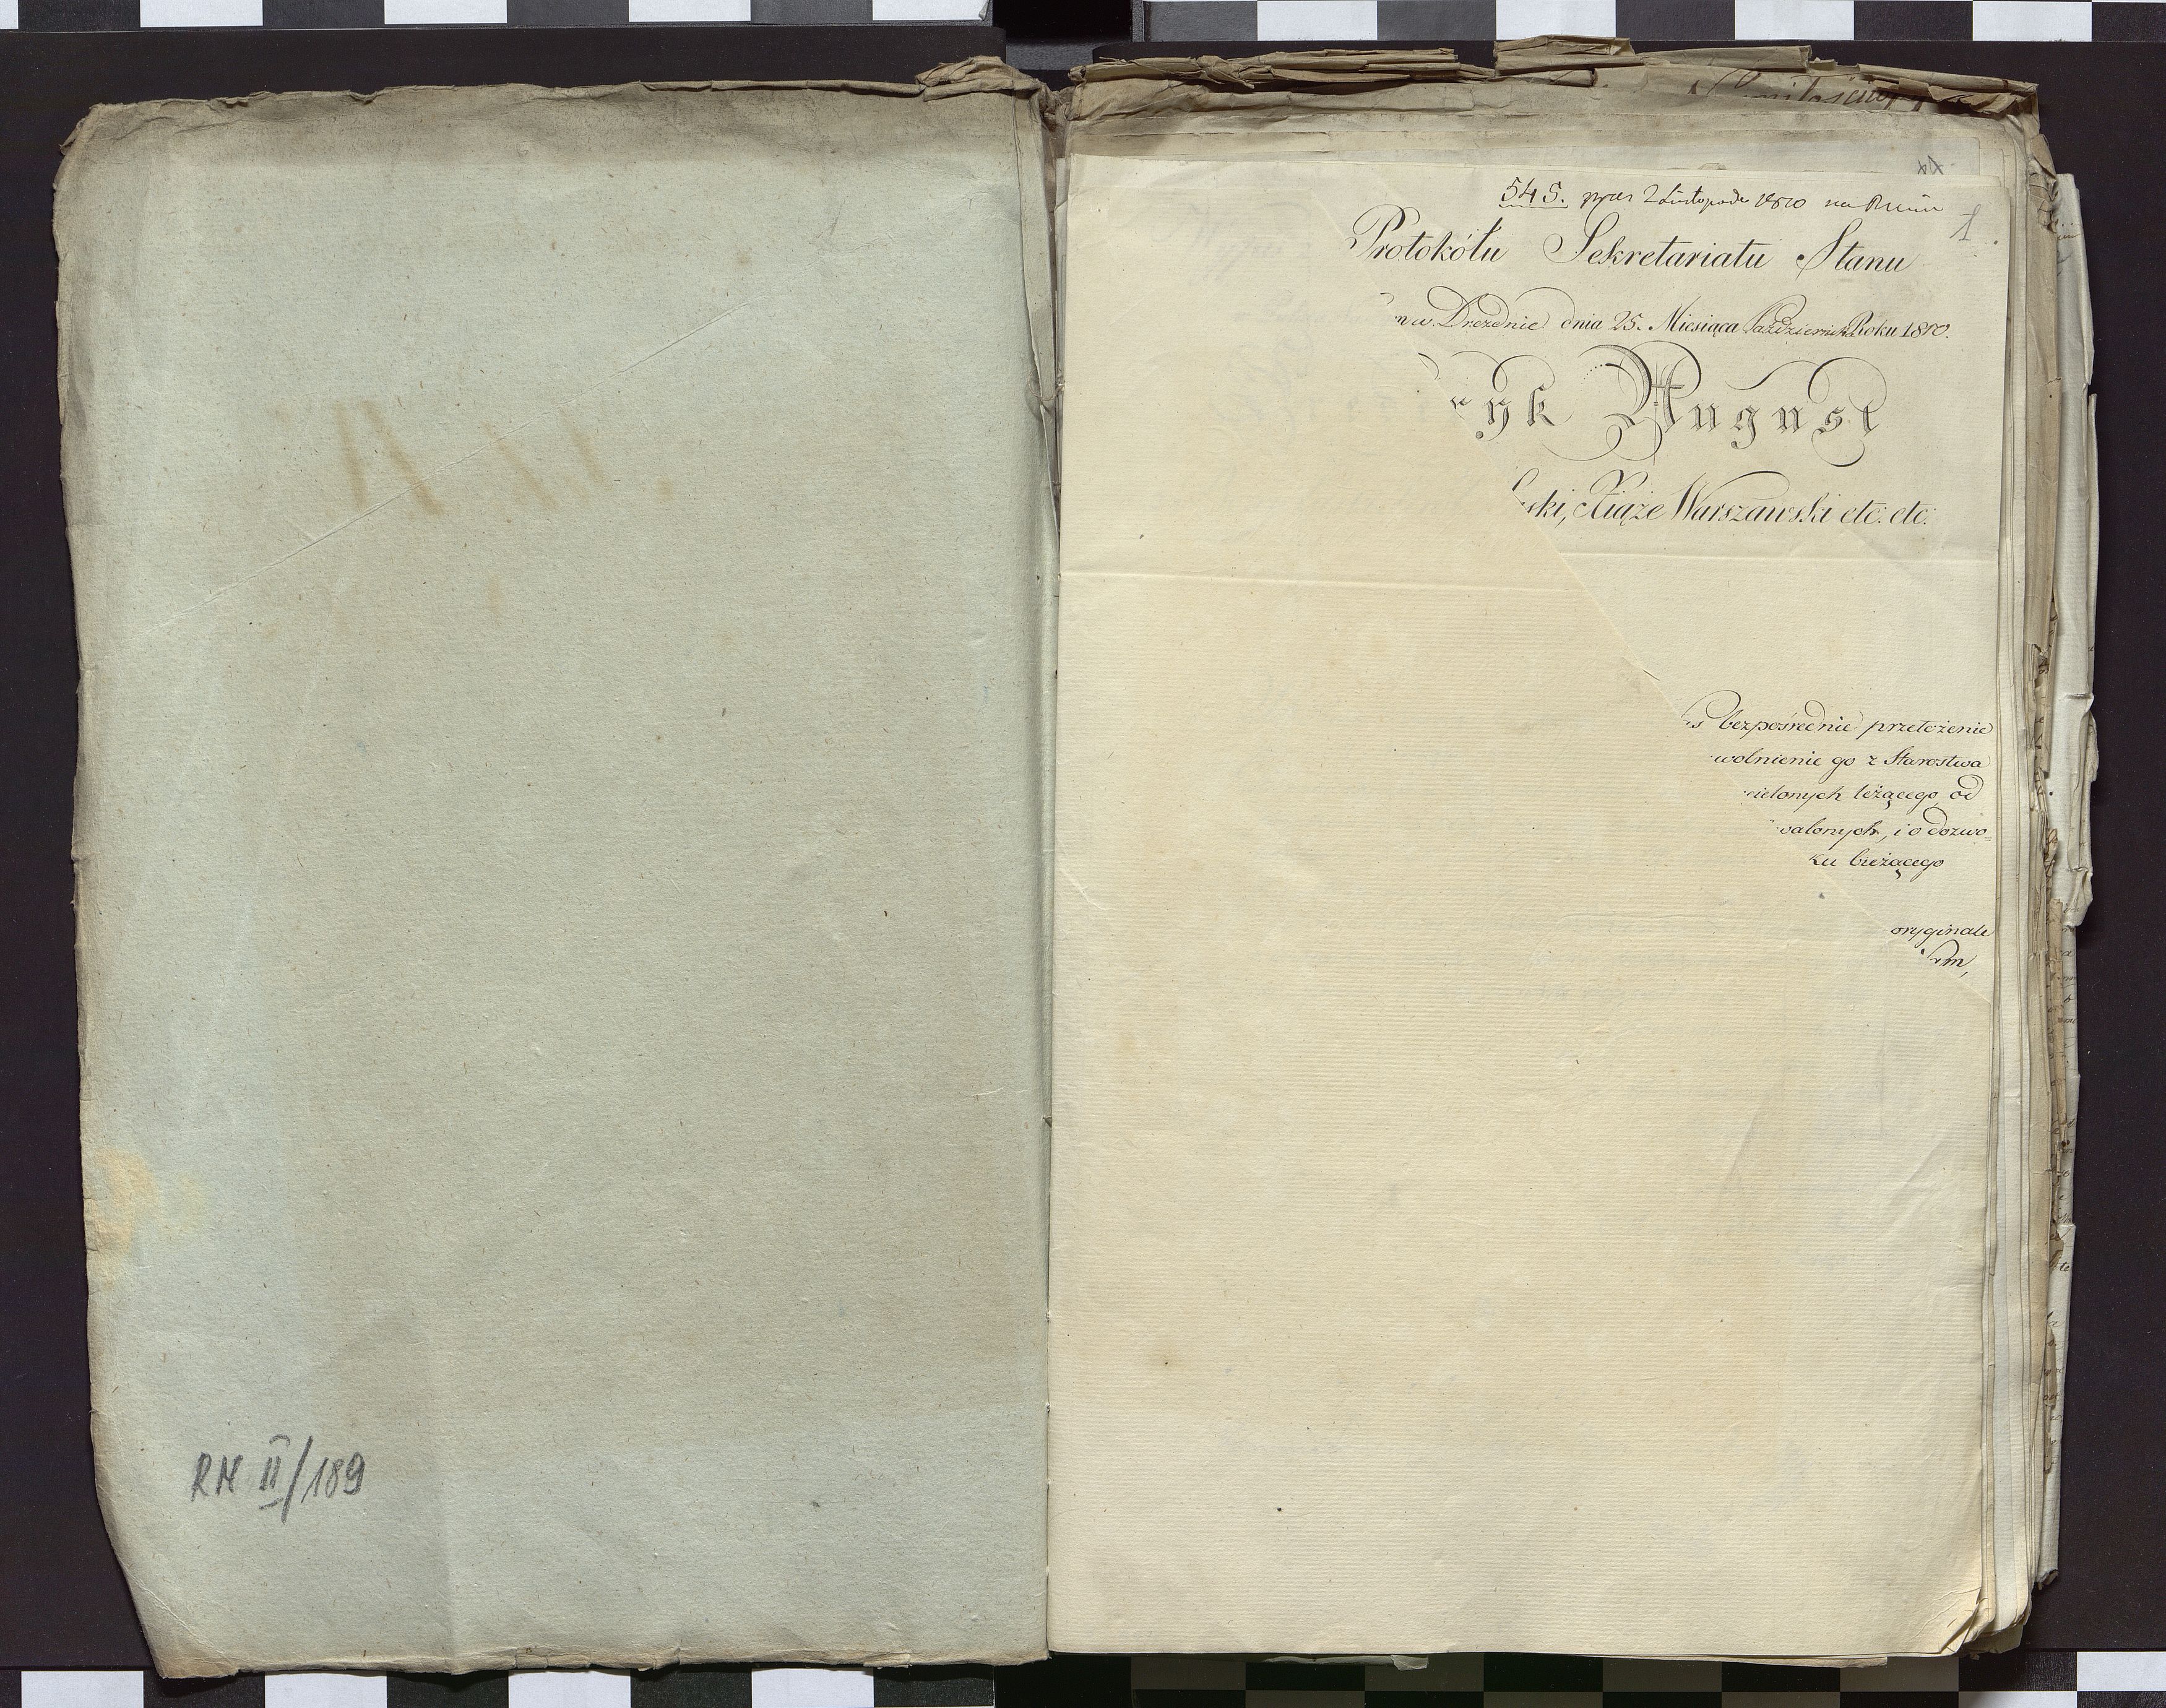 RM II/189
545. pras 2 Listopada 1810 na
1
Protokółu Sekretariatu Stanu
w Dreznie dnia 25. Miesiąca Października Roku 1810.
ryk August
ski, Xiąże Warszawski etc: etc:
bezpośrednie przełożenie
wolnienie go z Starostwa
cielonych leżącego, od
walonych, i o dozwo=
ku bieżącego
oryginale